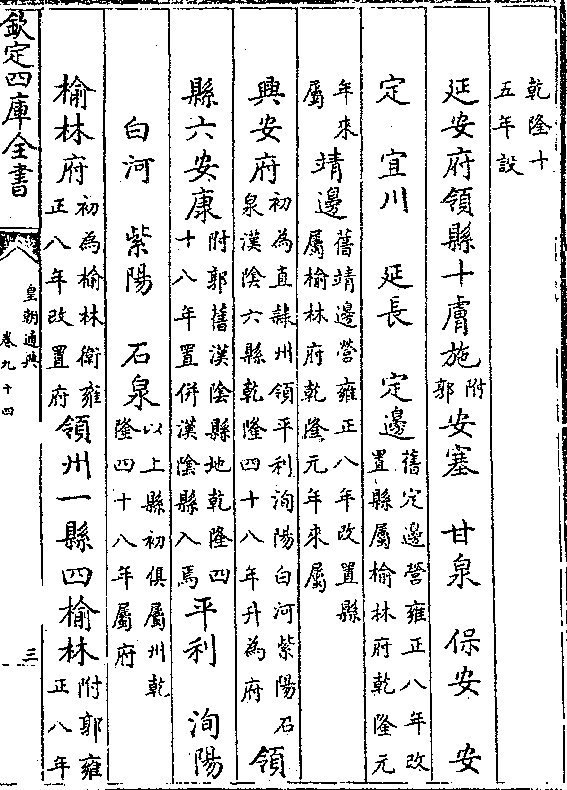 乾隆十
五年設
延安府領縣十膚施附郭安塞 甘泉 保安 安
定 宜川 延長 定邊舊定邊營雍正八年改置縣屬榆林府乾隆元
年來屬靖邊舊靖邊營雍正八年改置縣屬榆林府乾隆元年來屬
興安府初為直隸州領平利洵陽白河紫陽石泉漢陰六縣乾隆四十八年升為府領
縣六安康附郭舊漢陰縣地乾隆四十八年置併漢陰縣入焉平利 洵陽
白河 紫陽 石泉以上縣初俱屬州乾隆四十八年屬府
榆林府初為榆林衛雍正八年改置府領州一縣四榆林附郭雍正八年
欽定四庫全書
皇朝通典
卷九十四
三